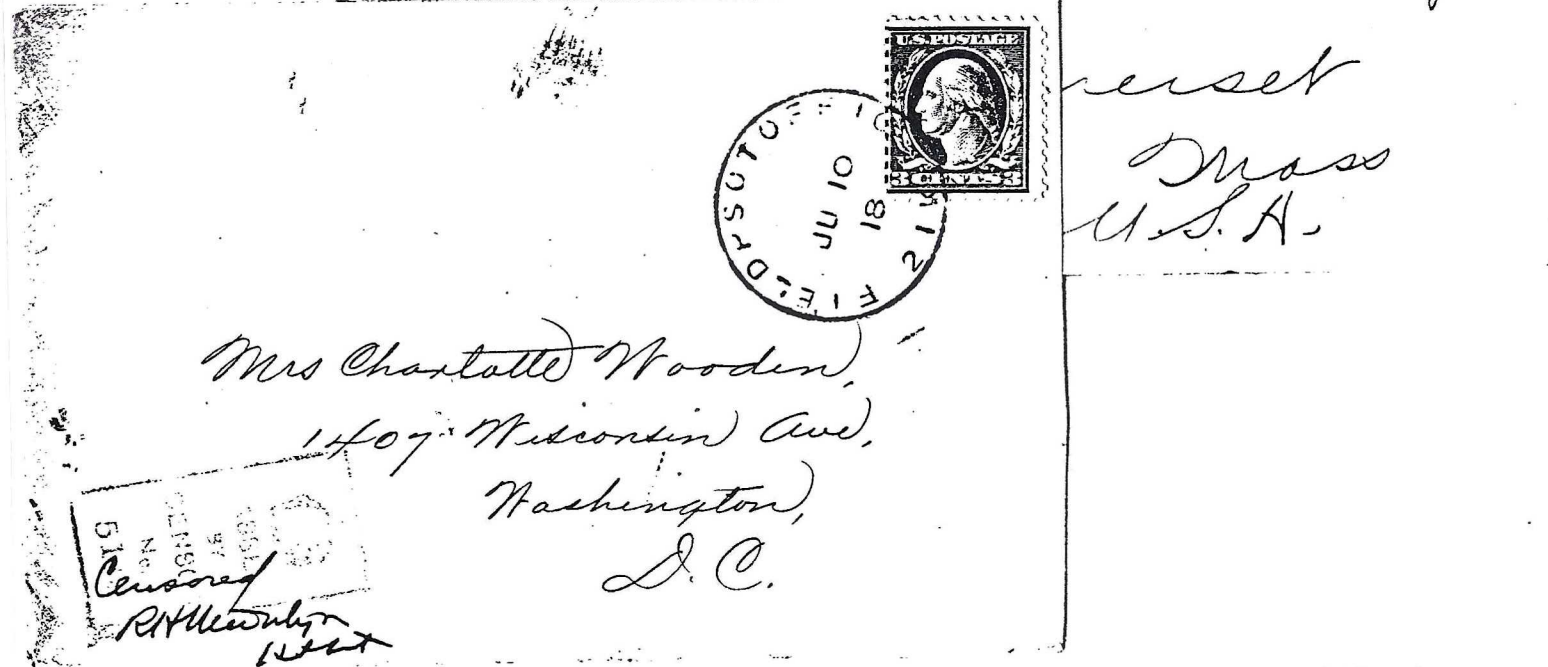 U.S. POSTAGE
3 CENTS 3
FIELD PSOTOFFIC
JU 10
18
Mrs Charlotte Wooden,
1407 Wisconsin Ave,
Washington,
D. C.
BY
No
51
Censored
erset
Mass
U.S.A.